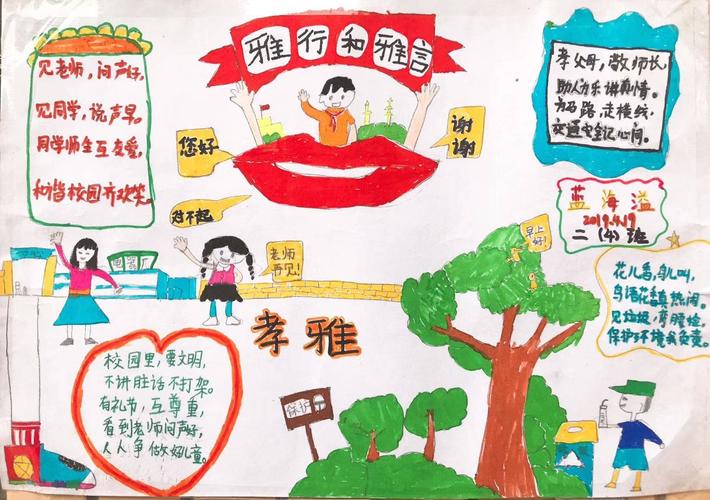 雅行和雅言
见老师，问声好，
见同学，说声早。
同学师生互友爱，
和谐校园齐欢笑。
您好
谢谢
对不起
孝父母，敬师长
助人为乐讲真情。
方马路，走横线，
交通安全记心间。
蓝海溢
2019.4.19
二（4）班
早上好！
老师再见！
孝雅
花儿香，鸟儿叫，
鸟语花香真热闹。
见垃圾，弯腰捡，
保护环境我负责。
校园里，要文明，
不讲脏话不打架。
有礼节，互尊重，
看到老师问声好，
人人争做好儿童。
保护